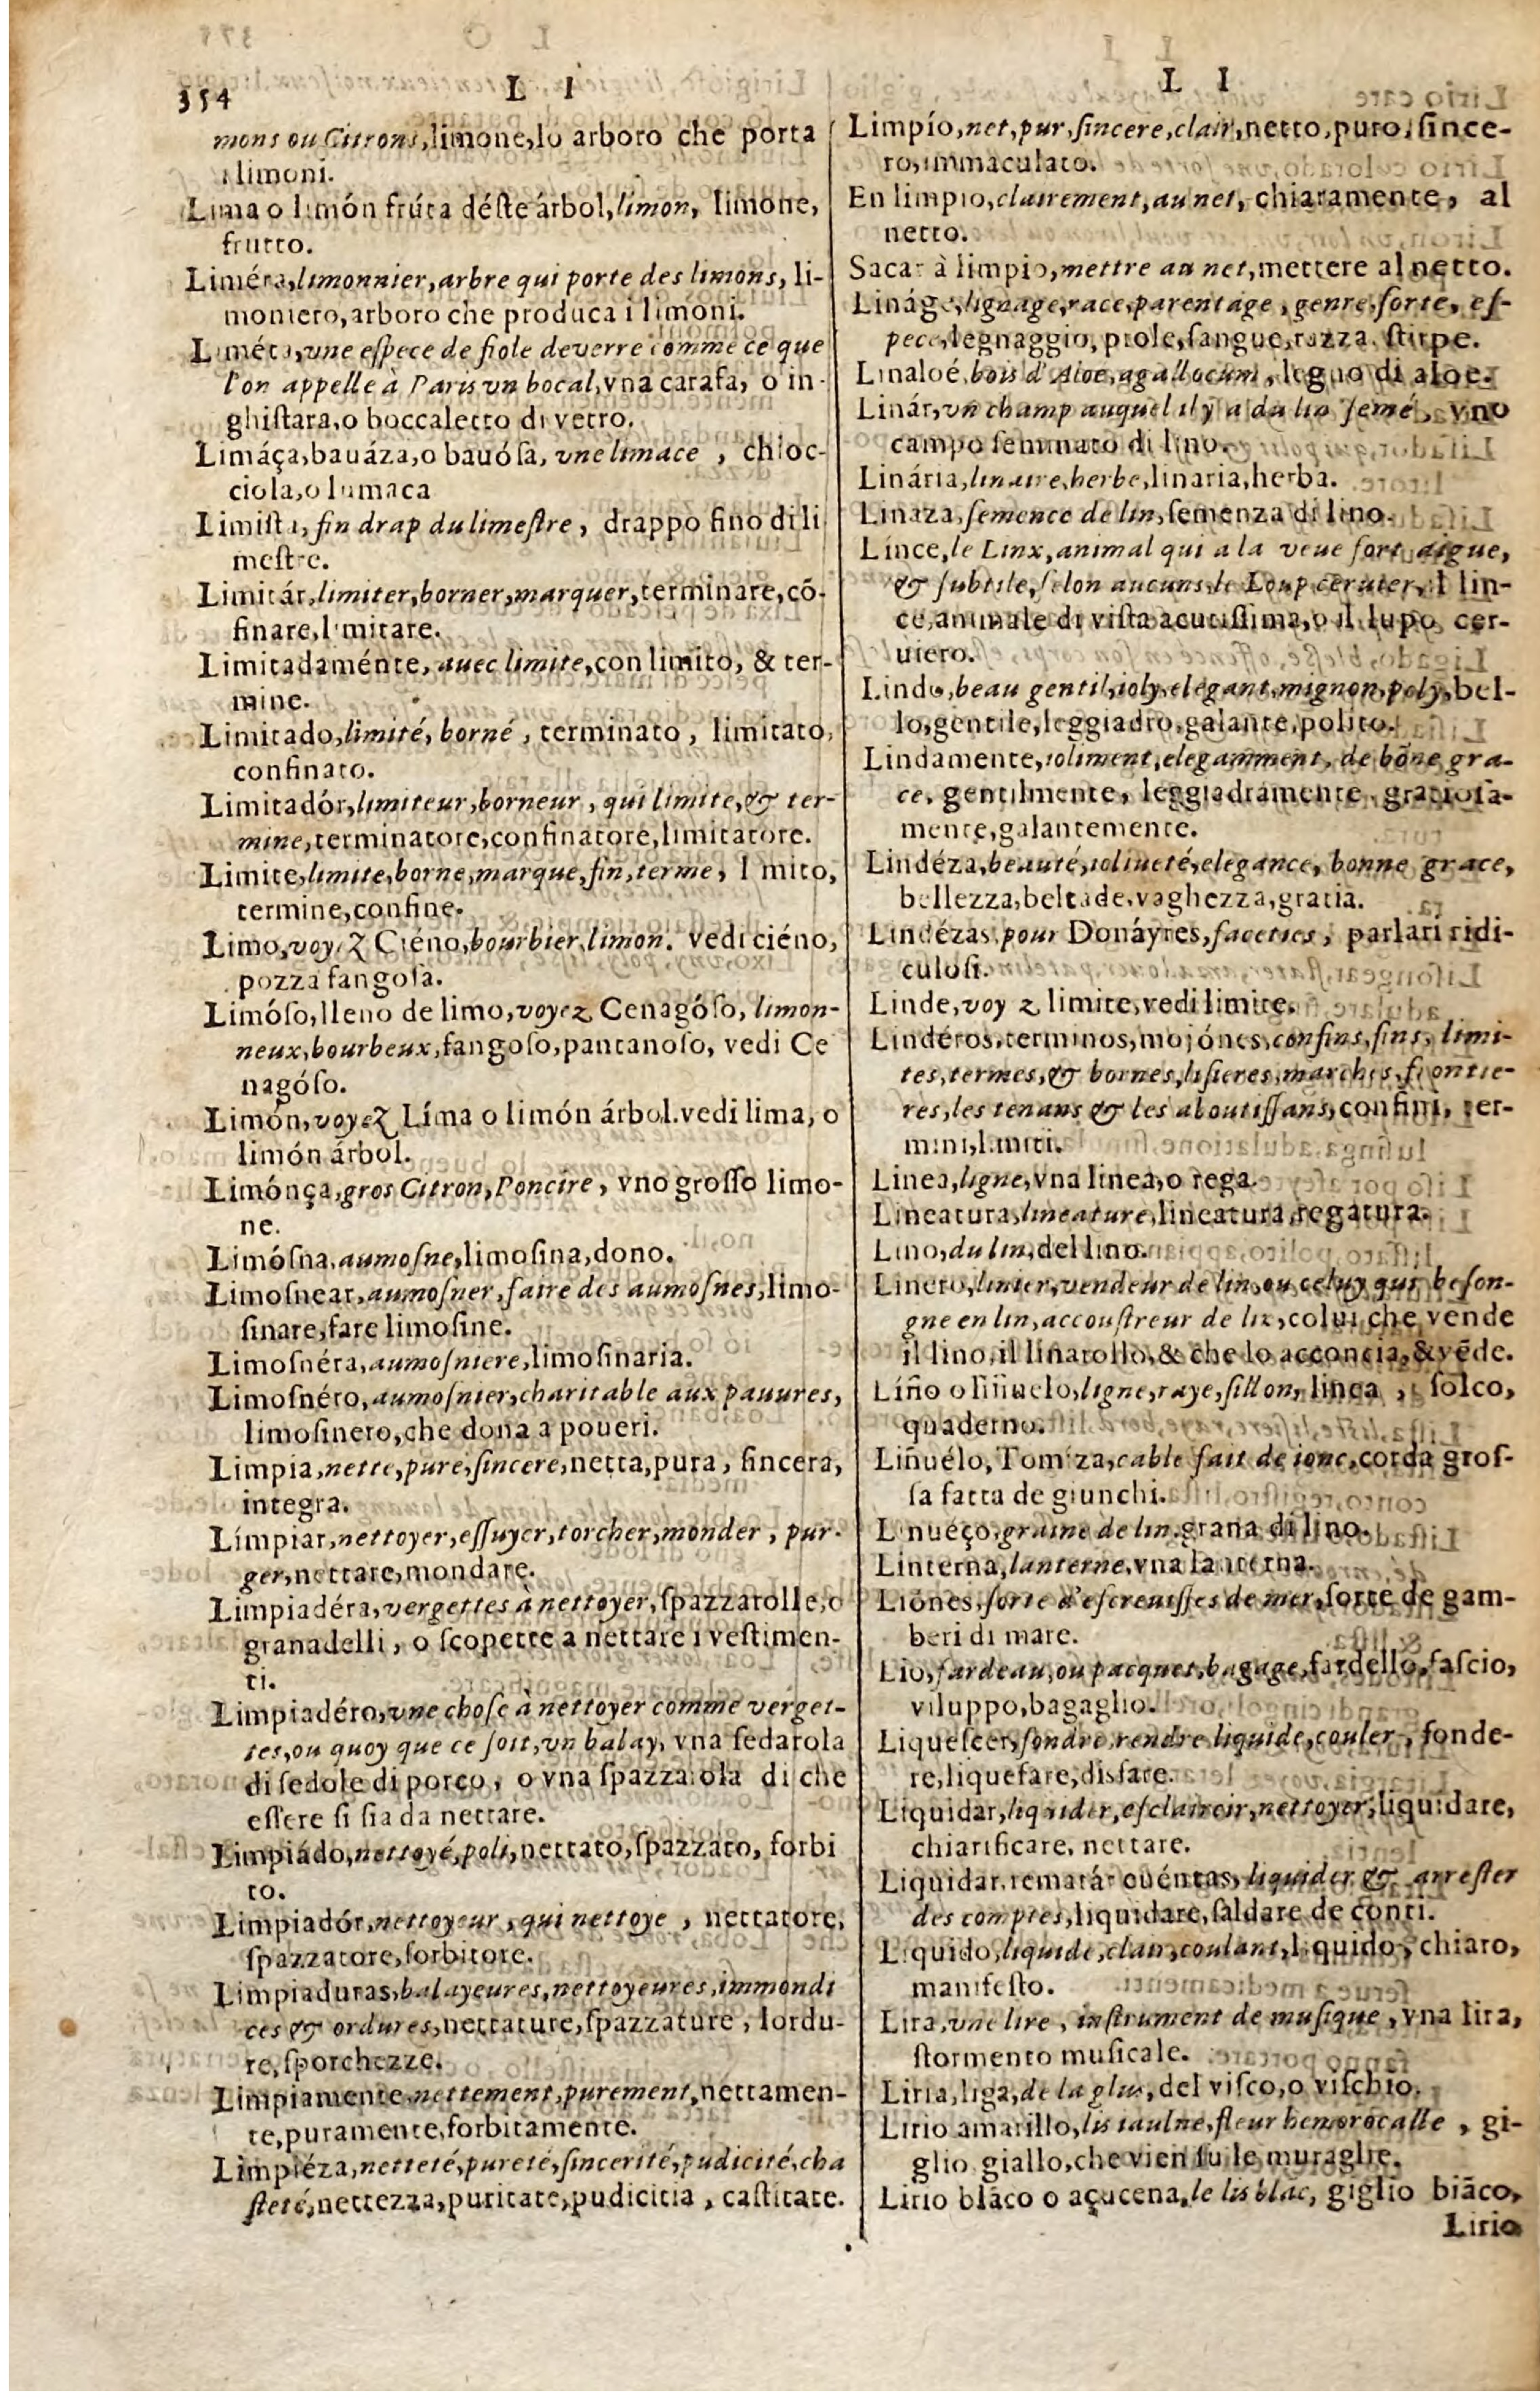 354
L I
mons ou Citrons, limone, lo arboro che porta
i limoni.
Lima o limón frúta déſte árbol, limon, limone,
frutto.
Liméra, limonnier, arbre qui porte des limons, li-
moniero, arboro che produca i limoni.
Liméta, vne eſpece de fiole de verre comme ce que
l'on appelle à Paris vn bocal, vna carafa, o in-
ghiſtara, o boccaletto di vetro.
Limáça, bauáza, o bauóſa, vne limace, chioc-
ciola, o lumaca
Limiſta, fin drap du limeſtre, drappo fino di li
meſtre.
Limitár, limiter, borner, marquer, terminare, cõ-
finare, limitare.
Limitadaménte, auec limite, con limito, & ter-
mine.
Limitado, limité, borné, terminato, limitato,
confinato.
Limitadór, limiteur, borneur, qui limite, & ter-
mine, terminatore, confinatore, limitatore.
Limite, limite, borne, marque, fin, terme, limito,
termine, confine.
Limo, voyez Ciéno, bourbier, limon. vedi ciéno,
pozza fangoſa.
Limóſo, lleno de limo, voyez Cenagóſo, limon-
neux, bourbeux, fangoſo, pantanoſo, vedi Ce
nagóſo.
Limón, voyez Líma o limón árbol. vedi lima, o
limón árbol.
Limónça, gros Citron, Poncire, vno groſſo limo-
ne.
Limóſna, aumoſne, limoſina, dono.
Limoſnear, aumoſner, faire des aumoſnes, limo-
ſinare, fare limoſine.
Limoſnéra, aumoſniere, limoſinaria.
Limoſnéro, aumoſnier, charitable aux pauures,
limoſinero, che dona a poueri.
Limpia, nette, pure, ſincere, netta, pura, ſincera,
integra.
Límpiar, nettoyer, eſſuyer, torcher, monder, pur-
ger, nettare, mondare.
Limpiadéra, vergettes à nettoyer, ſpazzarolle, o
granadelli, o ſcopette a nettare i veſtimen-
ti.
Limpiadéro, vne choſe à nettoyer comme verget-
tes, ou quoy que ce ſoit, vn balay, vna ſedarola
di ſedole di porco, o vna ſpazzarola di che
eſſere ſi ſia da nettare.
Limpiádo, nettoyé, poli, nettato, ſpazzato, forbi
to.
Limpiadór, nettoyeur, qui nettoye, nettatore,
ſpazzatore, forbitore.
Limpiaduras, balayeures, nettoyeures, immondi
ces & ordures, nettature, ſpazzature, lordu-
re, ſporchezze.
Limpiamente, nettement, purement, nettamen-
te, puramente, forbitamente.
Limpiéza, netteté, pureté, ſincerité, pudicité, cha
ſteté, nettezza, puritate, pudicitia, caſtitate.
L I
Limpío, net, pur, ſincere, clair, netto, puro, ſince-
ro, immaculato.
En limpio, clairement, au net, chiaramente, al
netto.
Sacar à limpio, mettre au net, mettere al netto.
Lináge, lignage, race, parentage, genre, ſorte, eſ-
pece, legnaggio, prole, ſangue, razza, ſtirpe.
Linaloé, bois d'Aloe, agallocum, legno di aloe.
Linár, vn champ auquel il y a du lin ſemé, vno
campo ſeminato di lino.
Linária, linaire, herbe, linaria, herba.
Linaza, ſemence de lin, ſemenza di lino.
Lince, le Linx, animal qui a la veue fort aigue,
& ſubtile, ſelon aucuns, le Loup ceruier, l lin-
ce, animale di viſta acutiſſima, o il lupo cer-
uiero.
Lindo, beau gentil, ioly, elegant, mignon, poly, bel-
lo, gentile, leggiadro, galante, polito.
Lindamente, ioliment, elegamment, de bõne gra-
ce, gentilmente, leggiadramente, gratioſa-
mente, galantemente.
Lindéza, beauté, iolineté, elegance, bonne grace,
bellezza, beltade, vaghezza, gratia.
Lindézas, pour Donáyres, faceties, parlari ridi-
culoſi.
Linde, voyez limite, vedi limite.
Lindéros, terminos, mojónes, confins, fins, limi-
tes, termes, & bornes, liſieres, marches, frontie-
res, les tenans & les aboutiſſans, confini, ter-
mini, limiti.
Linea, ligne, vna linea, o rega.
Lineatura, lineature, lineatura, regatura.
Lino, du lin, del lino.
Linero, linier, vendeur de lin, ou celuy qui beſon-
gne en lin, accouſtreur de lin, colui che vende
il lino, il linarollo, & che lo acconcia, & vẽde.
Líño o liñuelo, ligne, raye, ſillon, linea, ſolco,
quaderno.
Liñuélo, Tomiza, cable fait de ionc, corda groſ-
ſa fatta de giunchi.
Linuéço, graine de lin, grana di lino.
Linterna, lanterne, vna lanterna.
Liónes, ſorte d'eſcreuiſſes de mer, ſorte de gam-
beri di mare.
Lío, fardeau, ou pacquet, bagage, fardello, faſcio,
viluppo, bagaglio.
Liqueſcer, fondre, rendre liquide, couler, fonde-
re, liquefare, disfare.
Liquidar, liquider, eſclaircir, nettoyer, liquidare,
chiarificare, nettare.
Liquidar, rematár cuéntas, liquider & arreſter
des comptes, liquidare, ſaldare de conti.
Liquido, liquide, clair, coulant, liquido, chiaro,
manifeſto.
Lira, vne lire, inſtrument de muſique, vna lira,
ſtormento muſicale.
Liria, liga, de la glus, del viſco, o viſchio.
Lirio amarillo, lis iaulne, fleur hemorocalle, gi-
glio giallo, che vien ſu le muraglie.
Lirio blãco o açucena, le lis blãc, giglio biãco,
Lirio